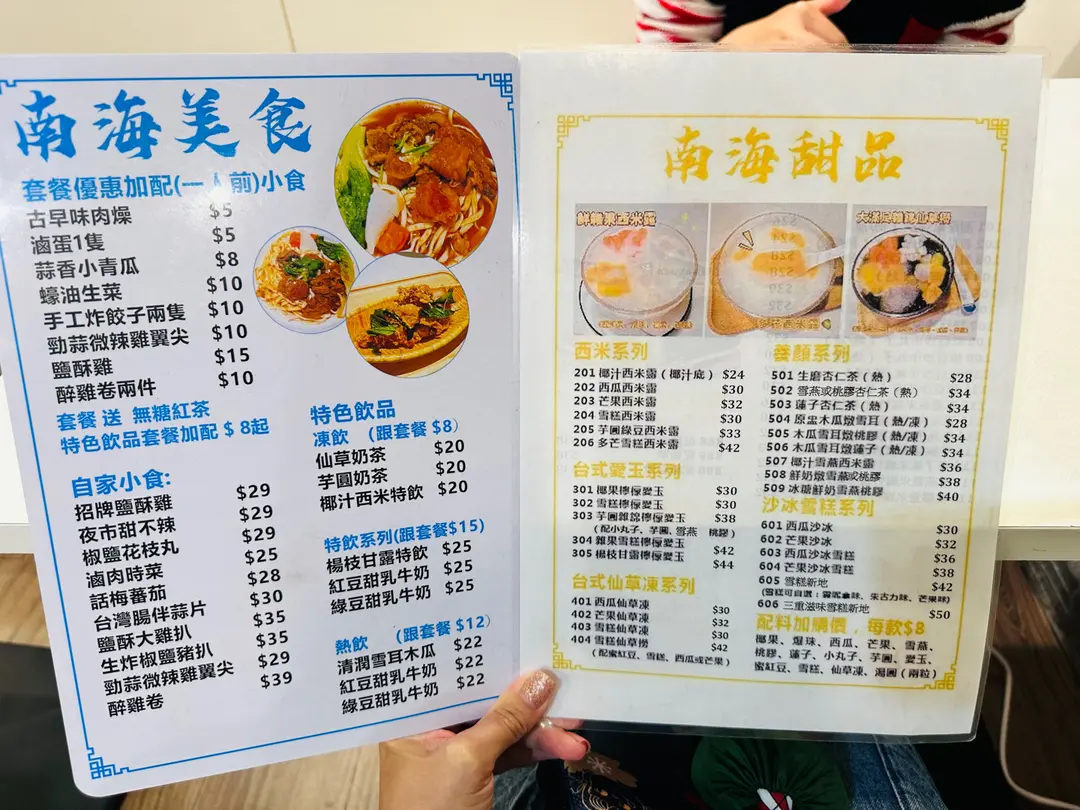 南海美食
套餐優惠加配(一人前)小食
古早味肉燥 $5
滷蛋1隻 $5
蒜香小青瓜 $8
蠔油生菜 $10
手工炸餃子兩隻 $10
勁蒜微辣雞翼尖 $10
鹽酥雞 $15
醉雞卷兩件 $10
套餐 送 無糖紅茶
特色飲品套餐加配 $ 8起
自家小食:
招牌鹽酥雞 $29
夜市甜不辣 $29
椒鹽花枝丸 $29
滷肉時菜 $25
話梅番茄 $28
台灣腸伴蒜片 $30
鹽酥大雞扒 $35
生炸椒鹽豬扒 $35
勁蒜微辣雞翼尖 $29
醉雞卷 $39
特色飲品
凍飲 (跟套餐 $8)
仙草奶茶 $20
芋圓奶茶 $20
椰汁西米特飲 $20
特飲系列(跟套餐$15)
楊枝甘露特飲 $25
紅豆甜乳牛奶 $25
綠豆甜乳牛奶 $25
熱飲 (跟套餐 $12)
清潤雪耳木瓜 $22
紅豆甜乳牛奶 $22
綠豆甜乳牛奶 $22
南海甜品
鮮雜果西米露
西米系列
201 椰汁西米露(椰汁底) $24
202 西瓜西米露 $30
203 芒果西米露 $32
204 雪糕西米露 $30
205 芋圓綠豆西米露 $33
206 多芒雪糕西米露 $42
台式愛玉系列
301 椰果檸檬愛玉 $30
302 雪糕檸檬愛玉 $30
303 芋圓雜錦檸檬愛玉 $38
(配小丸子、芋圓、雪燕 桃膠)
304 雜果雪糕檸檬愛玉 $42
305 楊枝甘露檸檬愛玉 $44
台式仙草凍系列
401 西瓜仙草凍 $30
402 芒果仙草凍 $32
403 雪糕仙草凍 $30
404 雪糕仙草撈 $42
(配蜜紅豆、雪糕、西瓜或芒果)
養顏系列
501 生磨杏仁茶(熱) $28
502 雪燕或桃膠杏仁茶(熱) $34
503 蓮子杏仁茶(熱) $34
504 原盅木瓜燉雪耳(熱/凍) $28
505 木瓜雪耳燉桃膠(熱/凍) $34
506 木瓜雪耳燉蓮子(熱/凍) $34
507 椰汁雪燕西米露 $36
508 鮮奶燉雪燕或桃膠 $38
509 冰糖鮮奶雪燕桃膠 $40
沙冰雪糕系列
601 西瓜沙冰 $30
602 芒果沙冰 $32
603 西瓜沙冰雪糕 $36
604 芒果沙冰雪糕 $38
605 雪糕新地 $42
606 三重滋味雪糕新地 $50
配料加購價，每款$8
椰果、爆珠、西瓜、芒果、雪燕、
桃膠、蓮子、小丸子、芋圓、愛玉、
蜜紅豆、雪糕、仙草凍、湯圓(兩粒)